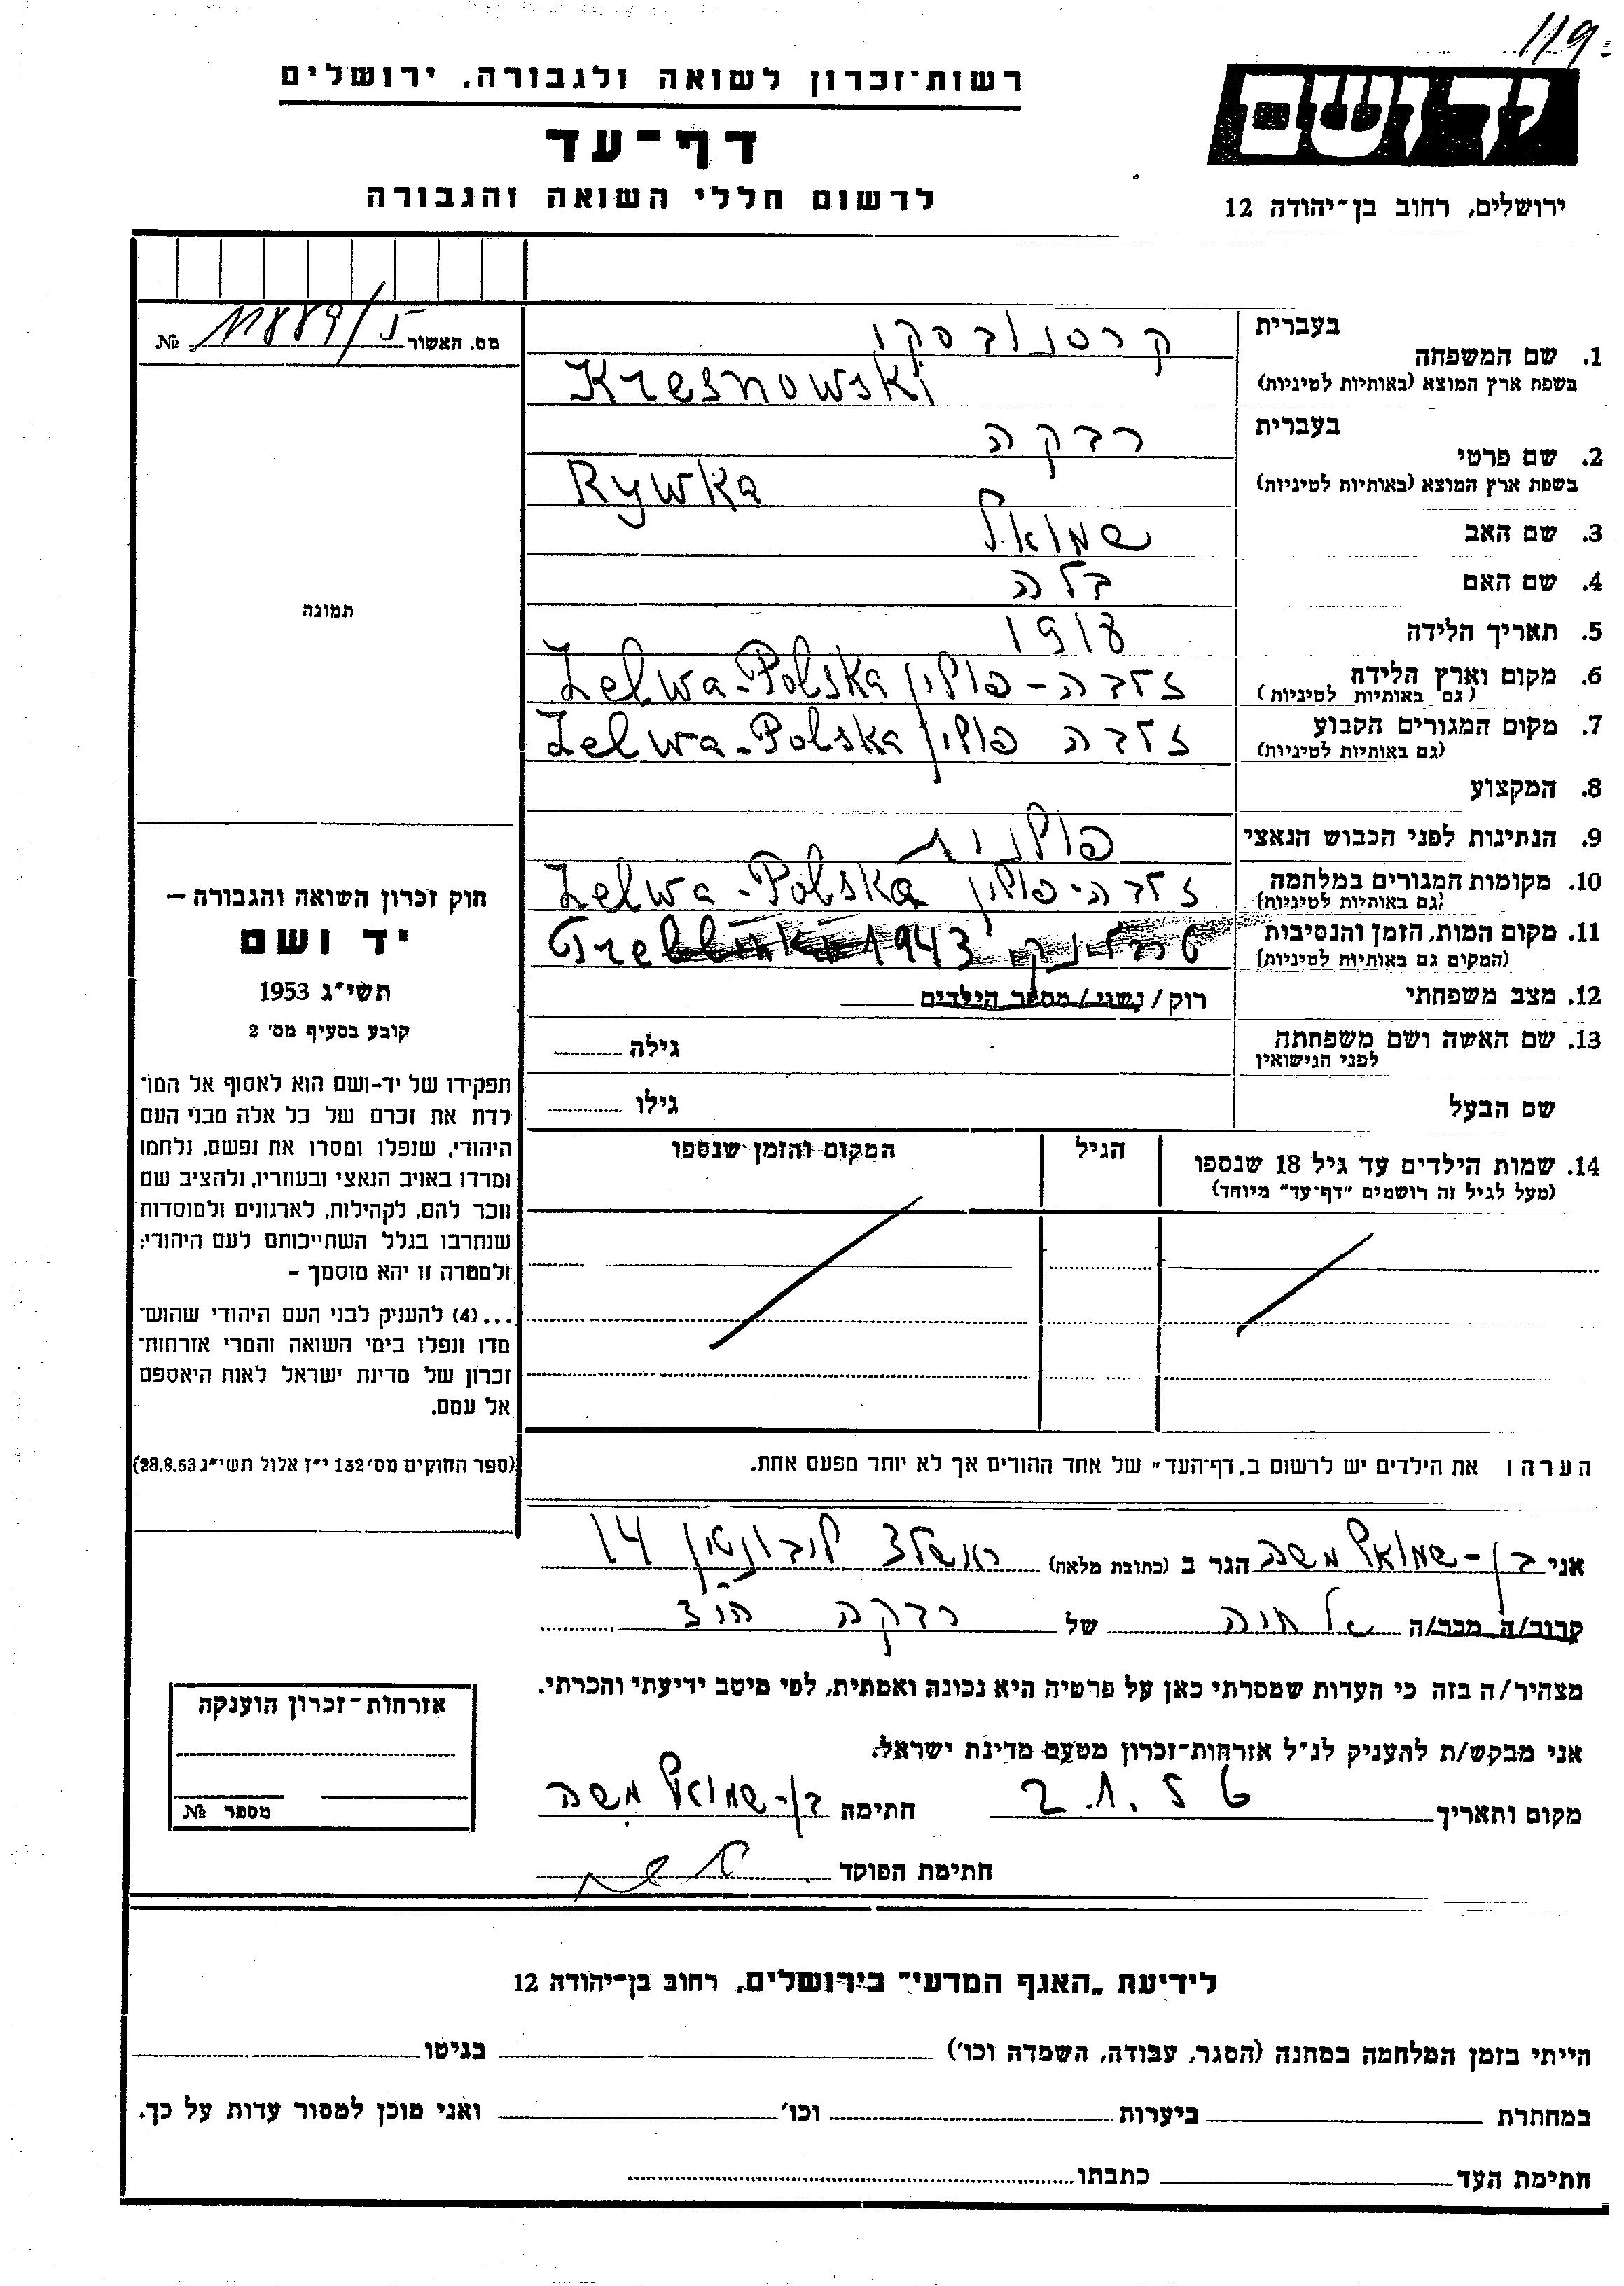 119-
יד ושם
ירושלים, רחוב בן-יהודה 12
רשות-זכרון לשואה ולגבורה, ירושלים
דף-עד
לרשום חללי השואה והגבורה
מס. האשור 11889/5 №
תמונה
1. שם המשפחה
בעברית קרסנובסקי
בשפת ארץ המוצא (באותיות לטיניות) Kresnowski
2. שם פרטי
בעברית רבקה
בשפת ארץ המוצא (באותיות לטיניות) Rywka
3. שם האב שמואל
4. שם האם בלה
5. תאריך הלידה 1918
6. מקום וארץ הלידה (גם באותיות לטיניות) זלבה - פולין Zelwa-Polska
7. מקום המגורים הקבוע (גם באותיות לטיניות) זלבה פולין Zelwa-Polska
8. המקצוע
9. הנתינות לפני הכבוש הנאצי פולנית
10. מקומות המגורים במלחמה (גם באותיות לטיניות) זלבה-פולין Zelwa-Polska
11. מקום המות, הזמן והנסיבות (המקום גם באותיות לטיניות) טרבלינקי 1943 Treblinki
12. מצב משפחתי רוק / נשוי / מספר הילדים
13. שם האשה ושם משפחתה לפני הנישואין גילה
שם הבעל גילו
14. שמות הילדים עד גיל 18 שנספו
(מעל לגיל זה רושמים "דף-עד" מיוחד)
הגיל
המקום והזמן שנספו
הערה: את הילדים יש לרשום ב„דף-העד" של אחד ההורים אך לא יותר מפעם אחת.
חוק זכרון השואה והגבורה –
יד ושם
תשי"ג 1953
קובע בסעיף מס' 2
תפקידו של יד-ושם הוא לאסוף אל המו־
לדת את זכרם של כל אלה מבני העם
היהודי, שנפלו ומסרו את נפשם, נלחמו
ומרדו באויב הנאצי ובעוזריו, ולהציב שם
וזכר להם, לקהילות, לארגונים ולמוסדות
שנחרבו בגלל השתייכותם לעם היהודי;
ולמטרה זו יהא מוסמך –
...(4) להעניק לבני העם היהודי שהוש־
מדו ונפלו בימי השואה והמרי אזרחות־
זכרון של מדינת ישראל לאות היאספם
אל עמם.
(ספר החוקים מס' 132 י"ז אלול תשי"ג 28.8.53)
אני בן-שמואל משה הגר ב (כתובת מלאה) ראשלצ לובונטין 14
קרוב/ה מכר/ה של חוה של רבקה הנ"ל
מצהיר/ה בזה כי העדות שמסרתי כאן על פרטיה היא נכונה ואמתית, לפי מיטב ידיעתי והכרתי.
אני מבקש/ת להעניק לנ"ל אזרחות-זכרון מטעם מדינת ישראל.
מקום ותאריך 2.1.56 חתימה בן-שמואל משה
חתימת הפוקד
אזרחות-זכרון הוענקה
מספר №
לידיעת „האגף המדעי" בירושלים, רחוב בן-יהודה 12
הייתי בזמן המלחמה במחנה (הסגר, עבודה, השמדה וכו') בגיטו
במחתרת ביערות וכו' ואני מוכן למסור עדות על כך.
חתימת העד כתבתו